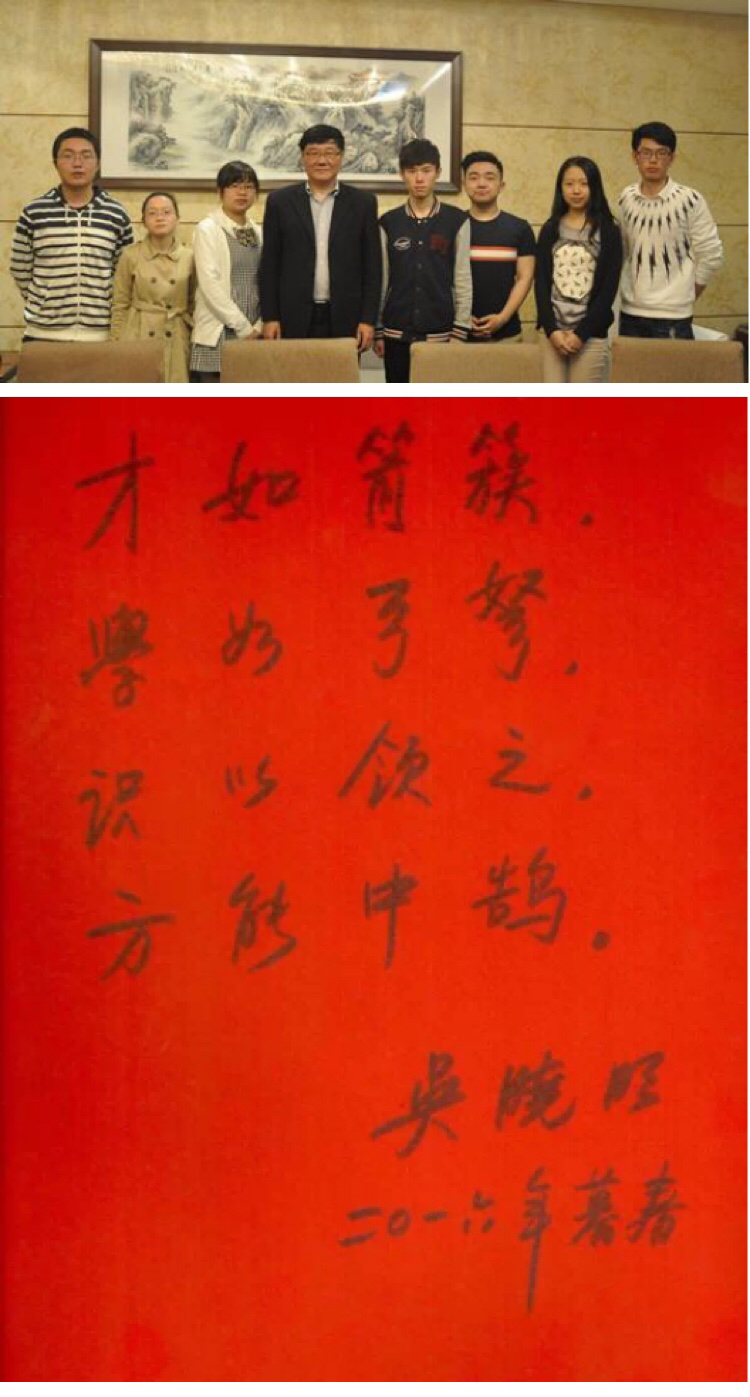 才如箭簇，
學如弓弩，
识以领之，
方能中鹄。
吴曉明
二〇一六年暮春